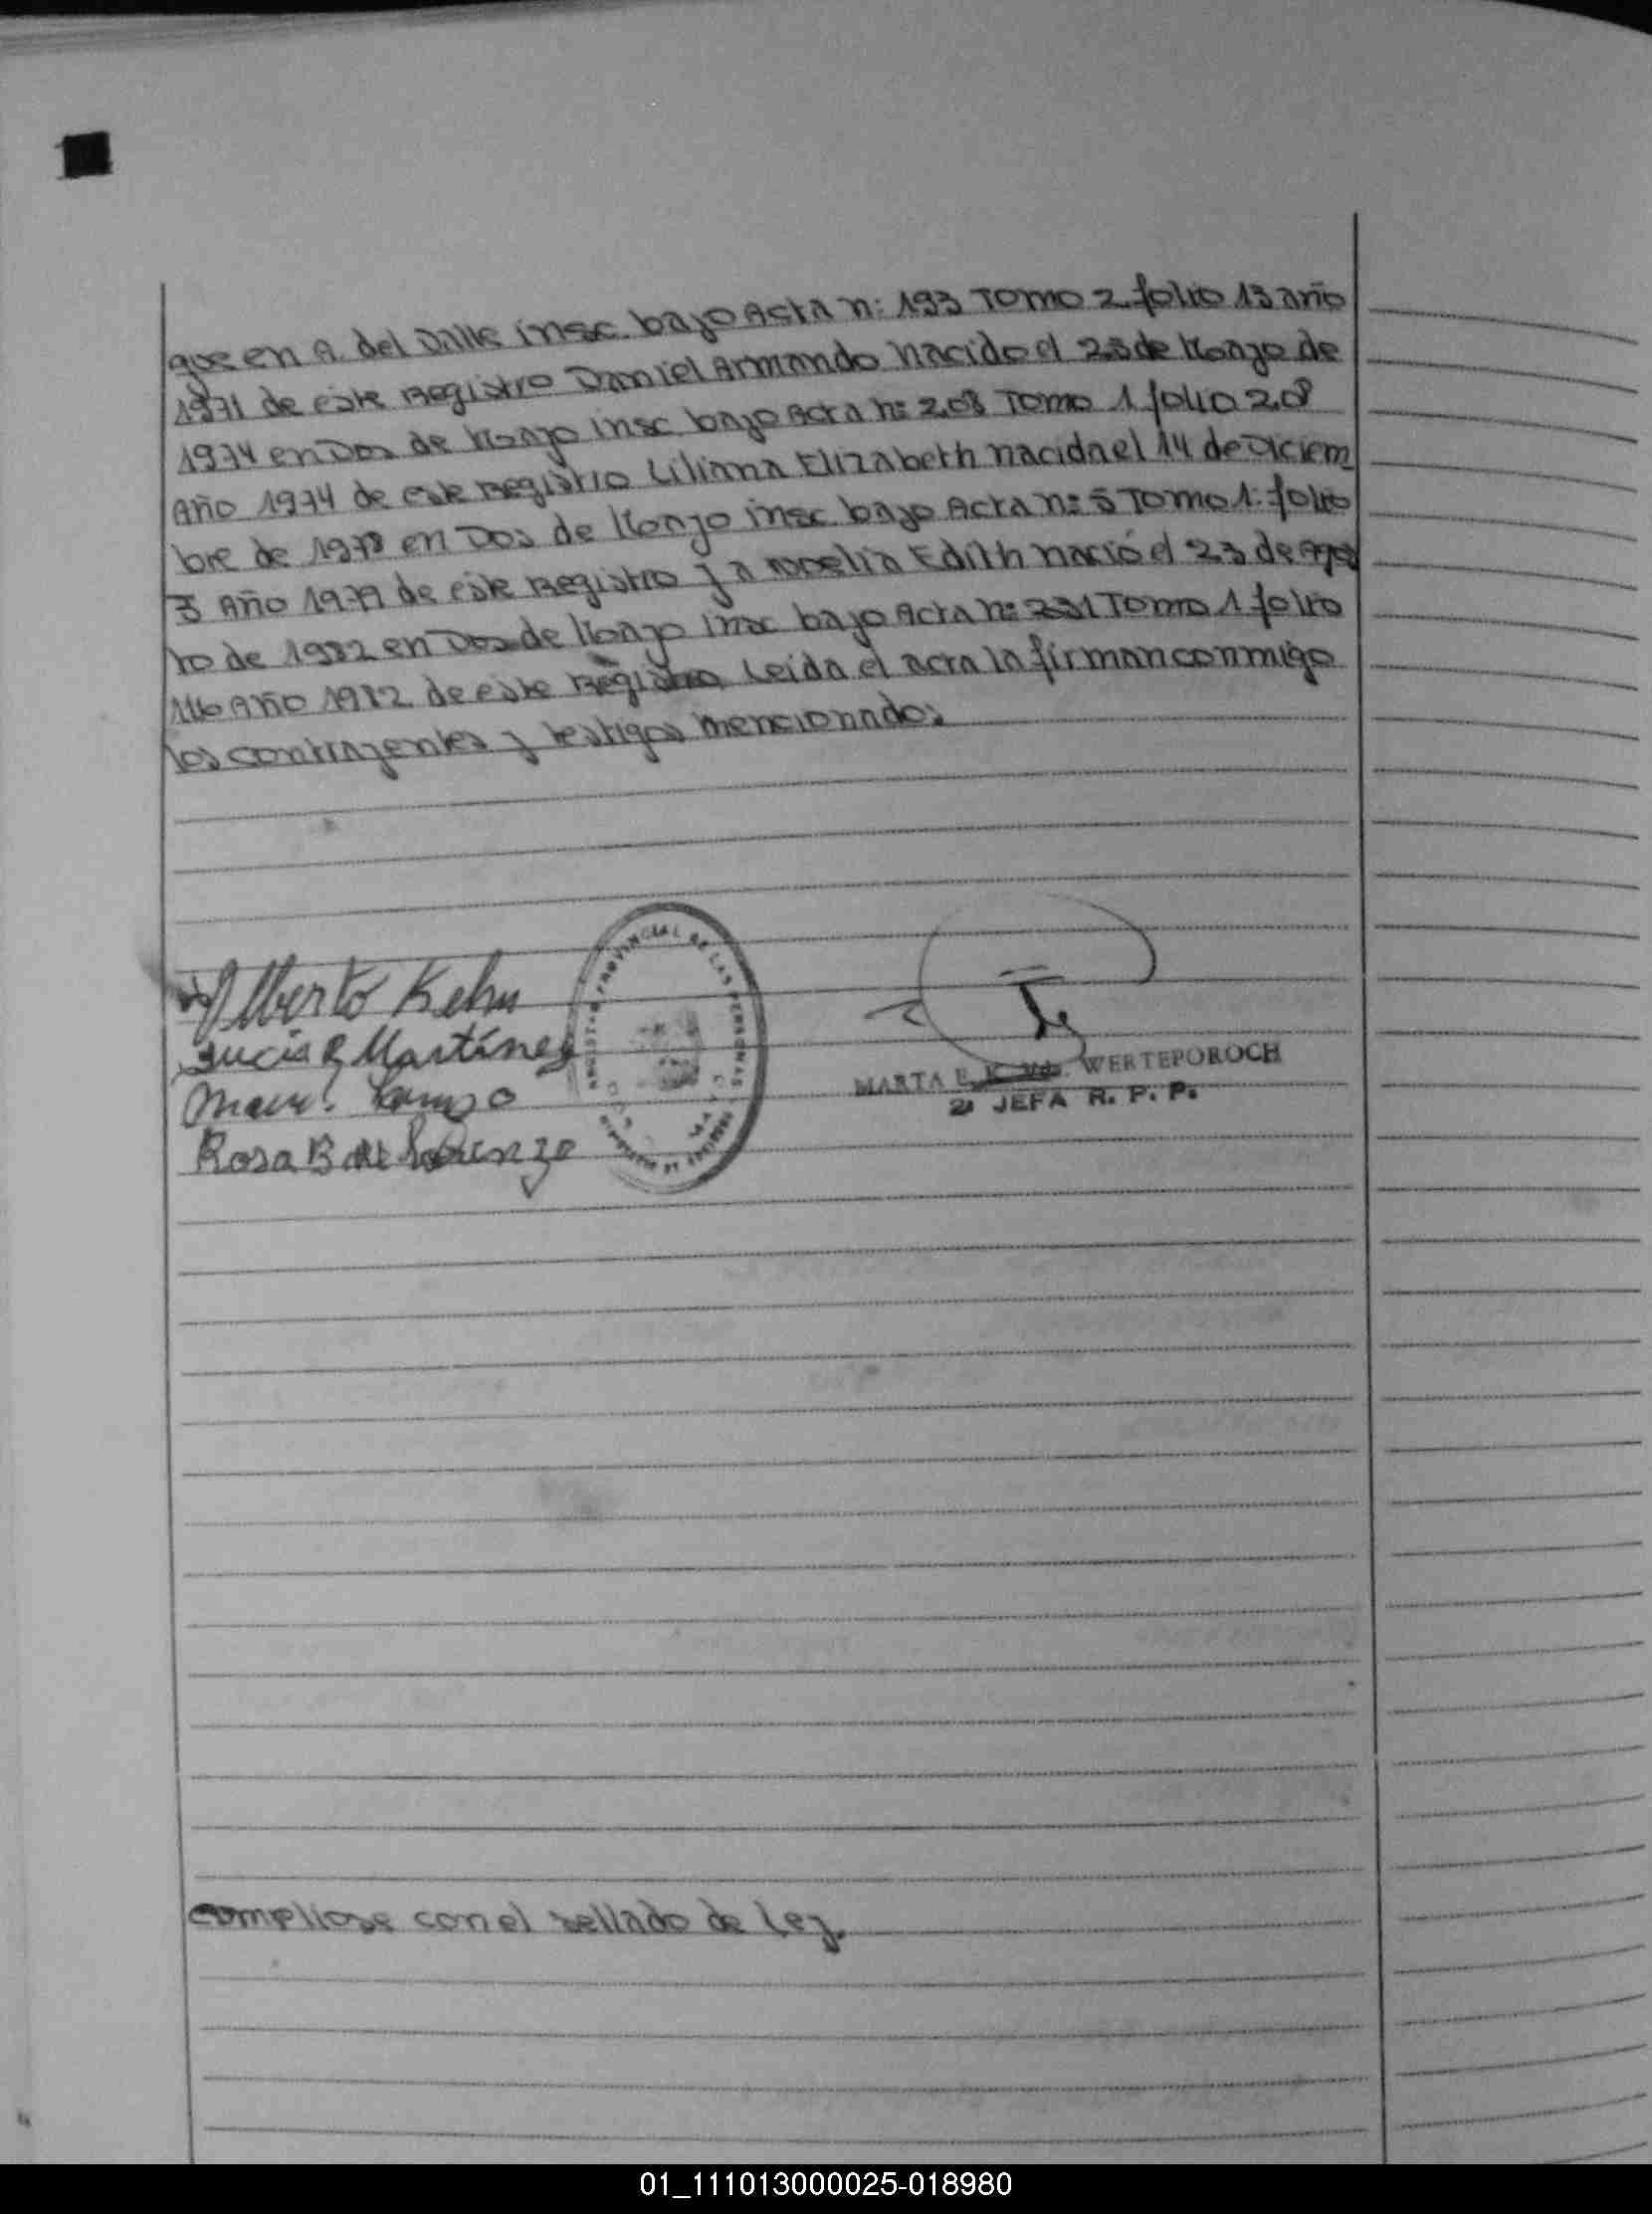 que en A. del Valle insc. bajo Acta n: 193 Tomo 2 folio 13 año
1971 de este Registro Daniel Armando nacido el 25 de Mayo de
1974 en Dos de Mayo insc. bajo Acta n: 208 Tomo 1 folio 208
Año 1974 de este Registro Liliana Elizabeth nacida el 14 de Diciem
bre de 1978 en Dos de Mayo insc. bajo Acta n: 5 Tomo 1: folio
5 Año 1979 de este Registro y a Noelia Edith nació el 23 de Agos
to de 1982 en Dos de Mayo insc bajo Acta n: 231 Tomo 1 folio
116 Año 1982 de este Registro. Leida el acta la firman conmigo
los contrayentes y testigos mencionados
Alberto Kehn
Lucia R Martínez
Rosa B de Lorenzo
REGISTRO PROVINCIAL DE LAS PERSONAS
MARTA E. WERTEPOROCH
JEFA R. P. P.
cumpliose con el sellado de Ley.
01_111013000025-018980